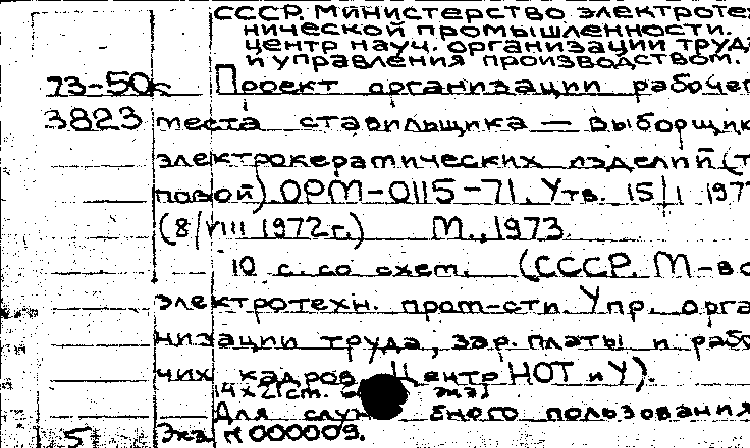 СССР. Министерство электроте
нической промышленности.
центр науч. организации труд
и управления производством.
73-50к Проект организации рабочег
3823 места ставильщика — выборщик
электрокерамических изделий (т
повой) ОРМ-0115-71. Утв. 15/I 197
(8/VIII 1972г.) М., 1973.
10 с. со схем. (СССР. М-во
электротехн. пром-сти. Упр. орга
низации труда, зар. платы и рабо
чих кадров. Центр НОТ и У).
14х21 см. экз
Для служебного пользования
5 Экз N 000009.